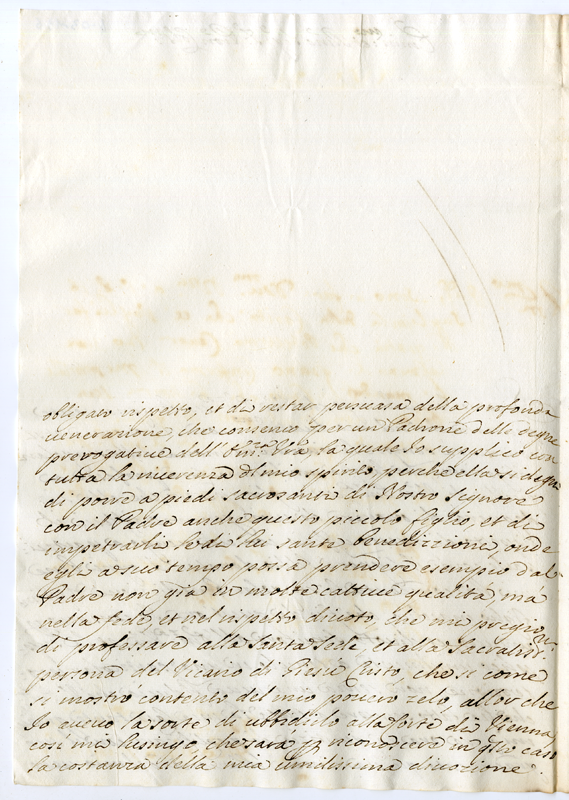 obligato rispetto, et di restar persuasa della profonda
venerazione, che conservo per un Padrone delle degne
prerogative dell' Em.ª Vrã la quale Io supplico con
tutta la riverenza d'lmio spirito perche ella si degni
di porre a piedi sacrosanti di Nostro Signore
con il Padre anche questo piccolo figlio, et di
impetrarli le di lui sante benedizzioni, onde
egli a suo tempo possa prendere esempio dal
Padre non già in molte cattive qualità ma
nella fede et nel rispetto divoto, che mi pregio
di professare alla Santa Sede et alla Sacratiss.ª
persona del Vicario di Giesù Cristo, che si come
si mostrò contento del mio povero zelo, allor che
Io avevo la sorte di ubbidirlo alla Corte di Vienna,
così mi lusingo, che sarà p riconoscere in q̃sto caso
la costanza della mia umilissima divozione.